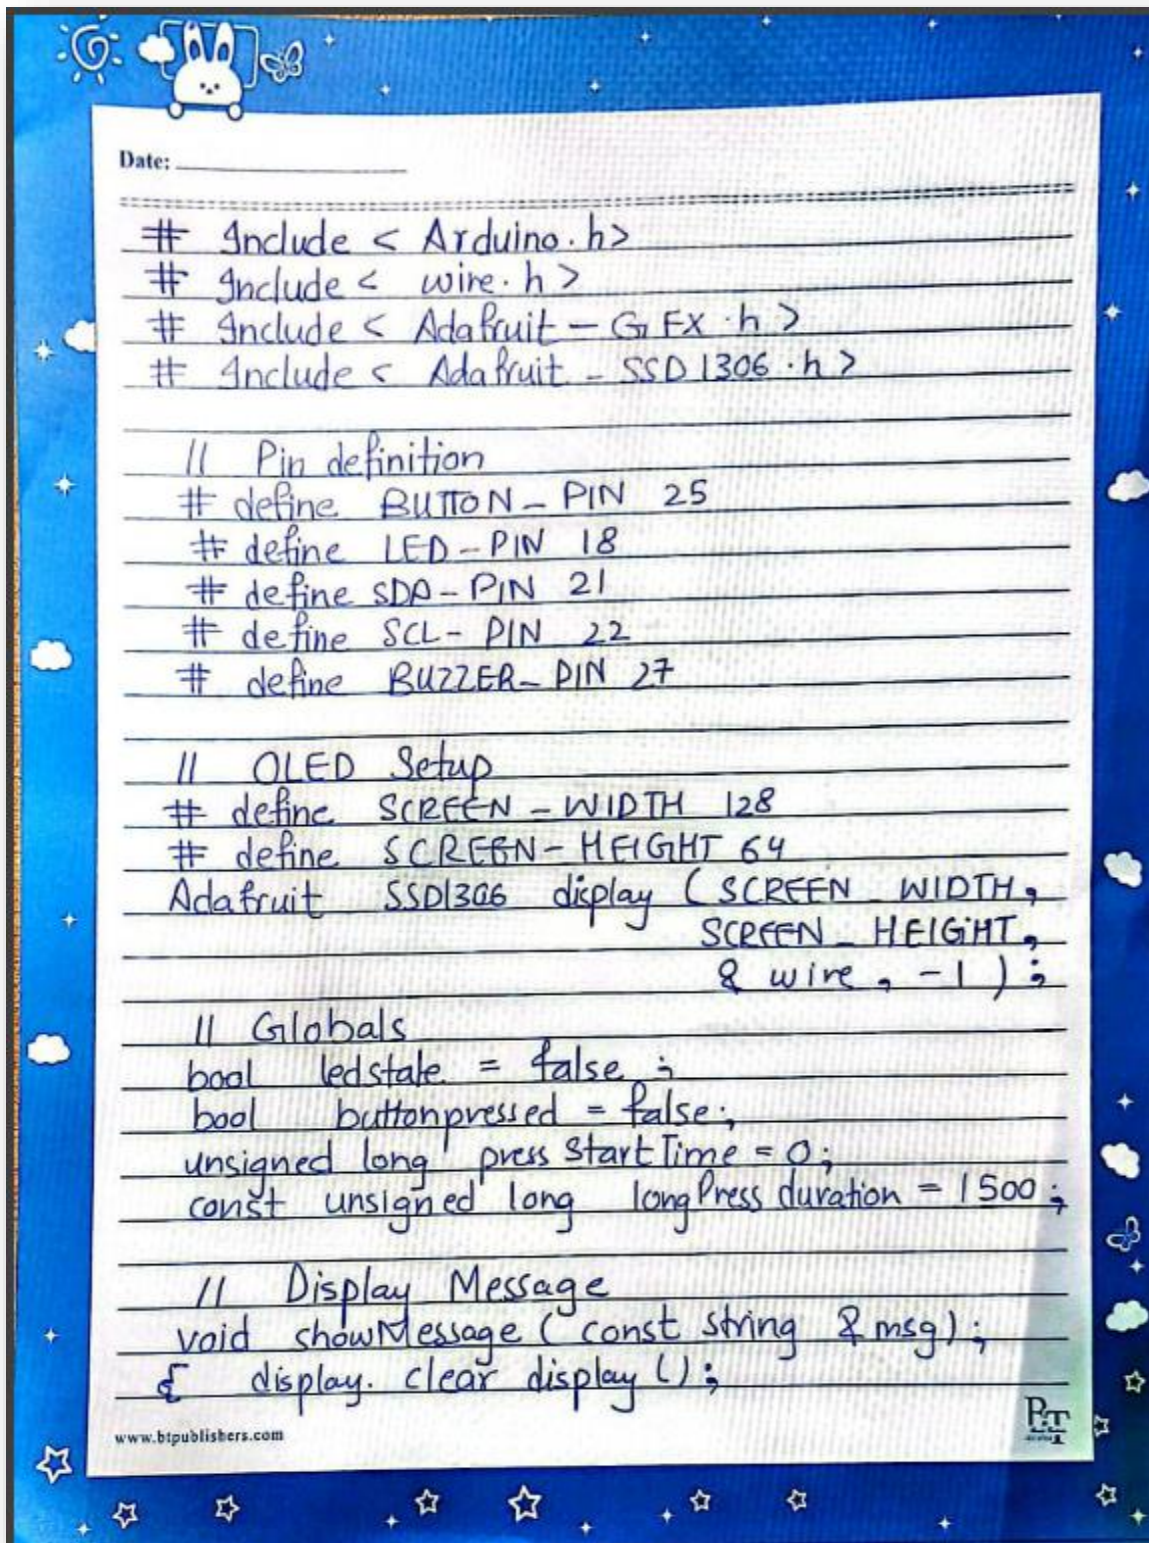 Date:
# Include < Arduino.h>
# Include < wire.h >
# Include < Adafruit - GFX .h >
# Include < Adafruit - SSD1306 .h >
// Pin definition
# define BUTTON - PIN 25
# define LED - PIN 18
# define SDA - PIN 21
# define SCL - PIN 22
# define BUZZER - PIN 27
// OLED Setup
# define SCREEN - WIDTH 128
# define SCREEN - HEIGHT 64
Adafruit SSD1306 display (SCREEN_WIDTH,
SCREEN_HEIGHT,
& wire, -1);
// Globals
bool ledstate = false ;
bool buttonpressed = false;
unsigned long press StartTime = 0;
const unsigned long longPress duration = 1500 ;
// Display Message
void showMessage (const string & msg) ;
{ display. clear display () ;
www.btpublishers.com